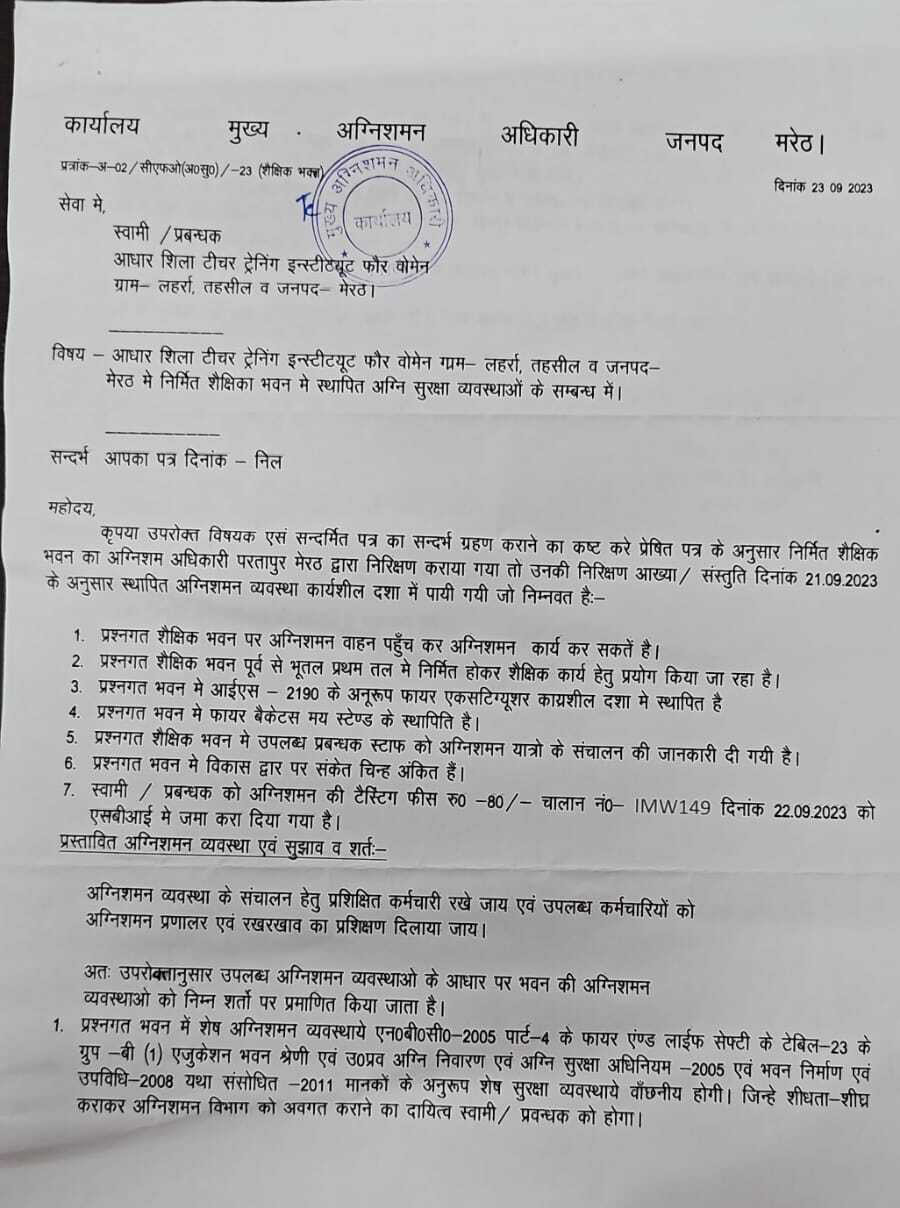 कार्यालय मुख्य . अग्निशमन अधिकारी जनपद मरेठ।
प्रत्रांक–अ–02/सीएफओ(अ0सु0)/–23 (शैक्षिक भवन)
दिनांक 23 09 2023
मुख्य अग्निशमन अधिकारी
कार्यालय
सेवा मे,
स्वामी /प्रबन्धक
आधार शिला टीचर ट्रेनिंग इन्स्टीटयूट फौर वोमेन
ग्राम– लहर्रा, तहसील व जनपद– मेरठ।
विषय – आधार शिला टीचर ट्रेनिंग इन्स्टीटयूट फौर वोमेन गा्रम– लहर्रा, तहसील व जनपद–
मेरठ मे निर्मित शैक्षिका भवन मे स्थापित अग्नि सुरक्षा व्यवस्थाओं के सम्बन्ध में।
सन्दर्भ आपका पत्र दिनांक – निल
महोदय,
कृपया उपरोक्त विषयक एसं सन्दर्मित पत्र का सन्दर्भ ग्रहण कराने का कष्ट करे प्रेषित पत्र के अनुसार निर्मित शैक्षिक
भवन का अग्निशम अधिकारी परतापुर मेरठ द्वारा निरिक्षण कराया गया तो उनकी निरिक्षण आख्या/ संस्तुति दिनांक 21.09.2023
के अनुसार स्थापित अग्निशमन व्यवस्था कार्यशील दशा में पायी गयी जो निम्नवत हैः–
1. प्रश्नगत शैक्षिक भवन पर अग्निशमन वाहन पहुँच कर अग्निशमन कार्य कर सकतें है।
2. प्रश्नगत शैक्षिक भवन पूर्व से भूतल प्रथम तल मे निर्मित होकर शैक्षिक कार्य हेतु प्रयोग किया जा रहा है।
3. प्रश्नगत भवन मे आईएस – 2190 के अनुरूप फायर एकसटिग्यूशर काय्रशील दशा मे स्थापित है
4. प्रश्नगत भवन मे फायर बैकेटस मय स्टेण्ड के स्थापिति है।
5. प्रश्नगत शैक्षिक भवन मे उपलब्ध प्रबन्धक स्टाफ को अग्निशमन यात्रो के संचालन की जानकारी दी गयी है।
6. प्रश्नगत भवन मे विकास द्वार पर संकेत चिन्ह अंकित हैं।
7. स्वामी / प्रबन्धक को अग्निशमन की टैस्टिग फीस रु0 –80/– चालान नं0– IMW149 दिनांक 22.09.2023 को
एसबीआई मे जमा करा दिया गया है।
प्रस्तावित अग्निशमन व्यवस्था एवं सुझाव व शर्तः–
अग्निशमन व्यवस्था के संचालन हेतु प्रशिक्षित कर्मचारी रखे जाय एवं उपलब्ध कर्मचारियों को
अग्निशमन प्रणालर एवं रखरखाव का प्रशिक्षण दिलाया जाय।
अतः उपरोक्तानुसार उपलब्ध अग्निशमन व्यवस्थाओ के आधार पर भवन की अग्निशमन
व्यवस्थाओ को निम्न शर्तो पर प्रमाणित किया जाता है।
1. प्रश्नगत भवन में शेष अग्निशमन व्यवस्थाये एन0बी0सी0–2005 पार्ट–4 के फायर एंण्ड लाईफ सेफ्टी के टेबिल–23 के
ग्रुप –बी (1) एजुकेशन भवन श्रेणी एवं उ0प्रव अग्नि निवारण एवं अग्नि सुरक्षा अधिनियम –2005 एवं भवन निर्माण एवं
उपविधि–2008 यथा संसोधित –2011 मानकों के अनुरूप शेष सुरक्षा व्यवस्थाये वाँछनीय होगी। जिन्हे शीधता–शीघ्र
कराकर अग्निशमन विभाग को अवगत कराने का दायित्व स्वामी/ प्रवन्धक को होगा।